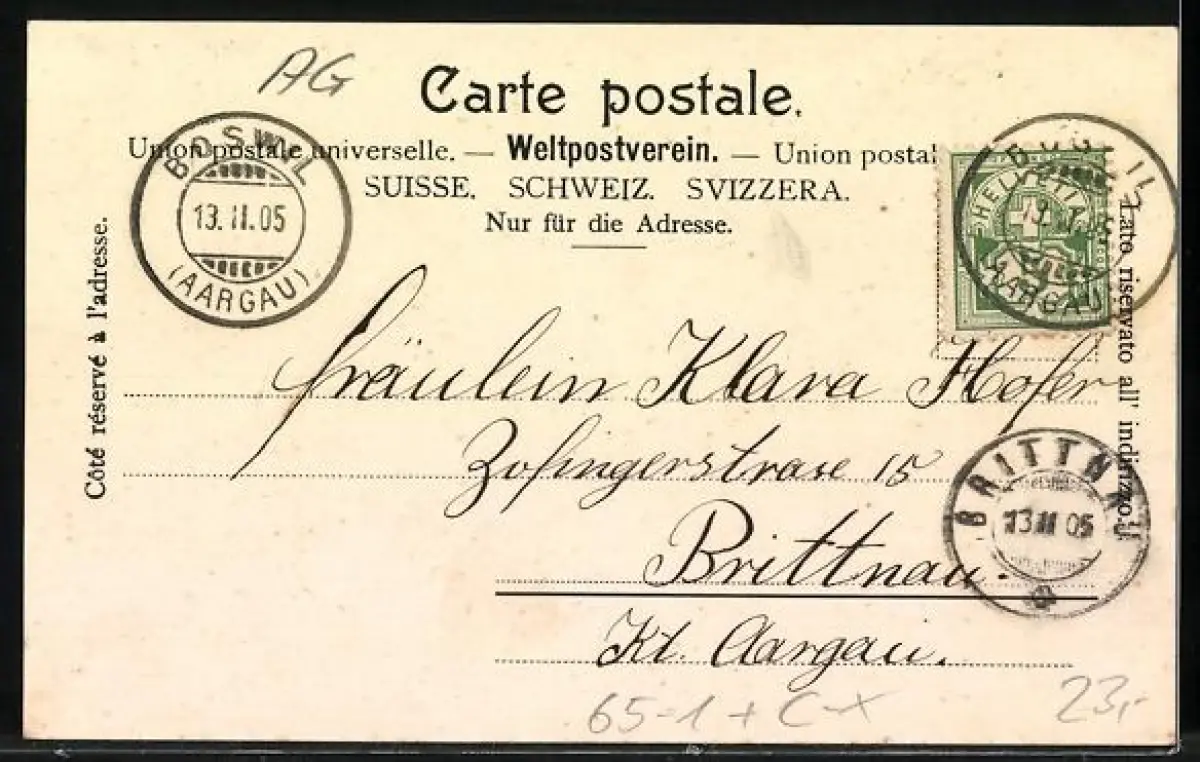 AG
Carte postale.
Union postale universelle. — Weltpostverein. — Union postal
SUISSE. SCHWEIZ. SVIZZERA.
Nur für die Adresse.
BOSWIL
13.II.05
(AARGAU)
HELVETIA
AARGAU
Côté réservé à l'adresse.
Lato riservato all' indirizzo.
Fräulein Klara Hofer
Zofingerstrase 15
BRITTNAU
13 II 05
Brittnau.
Kt. Aargau.
65-1 + C-x
23,-